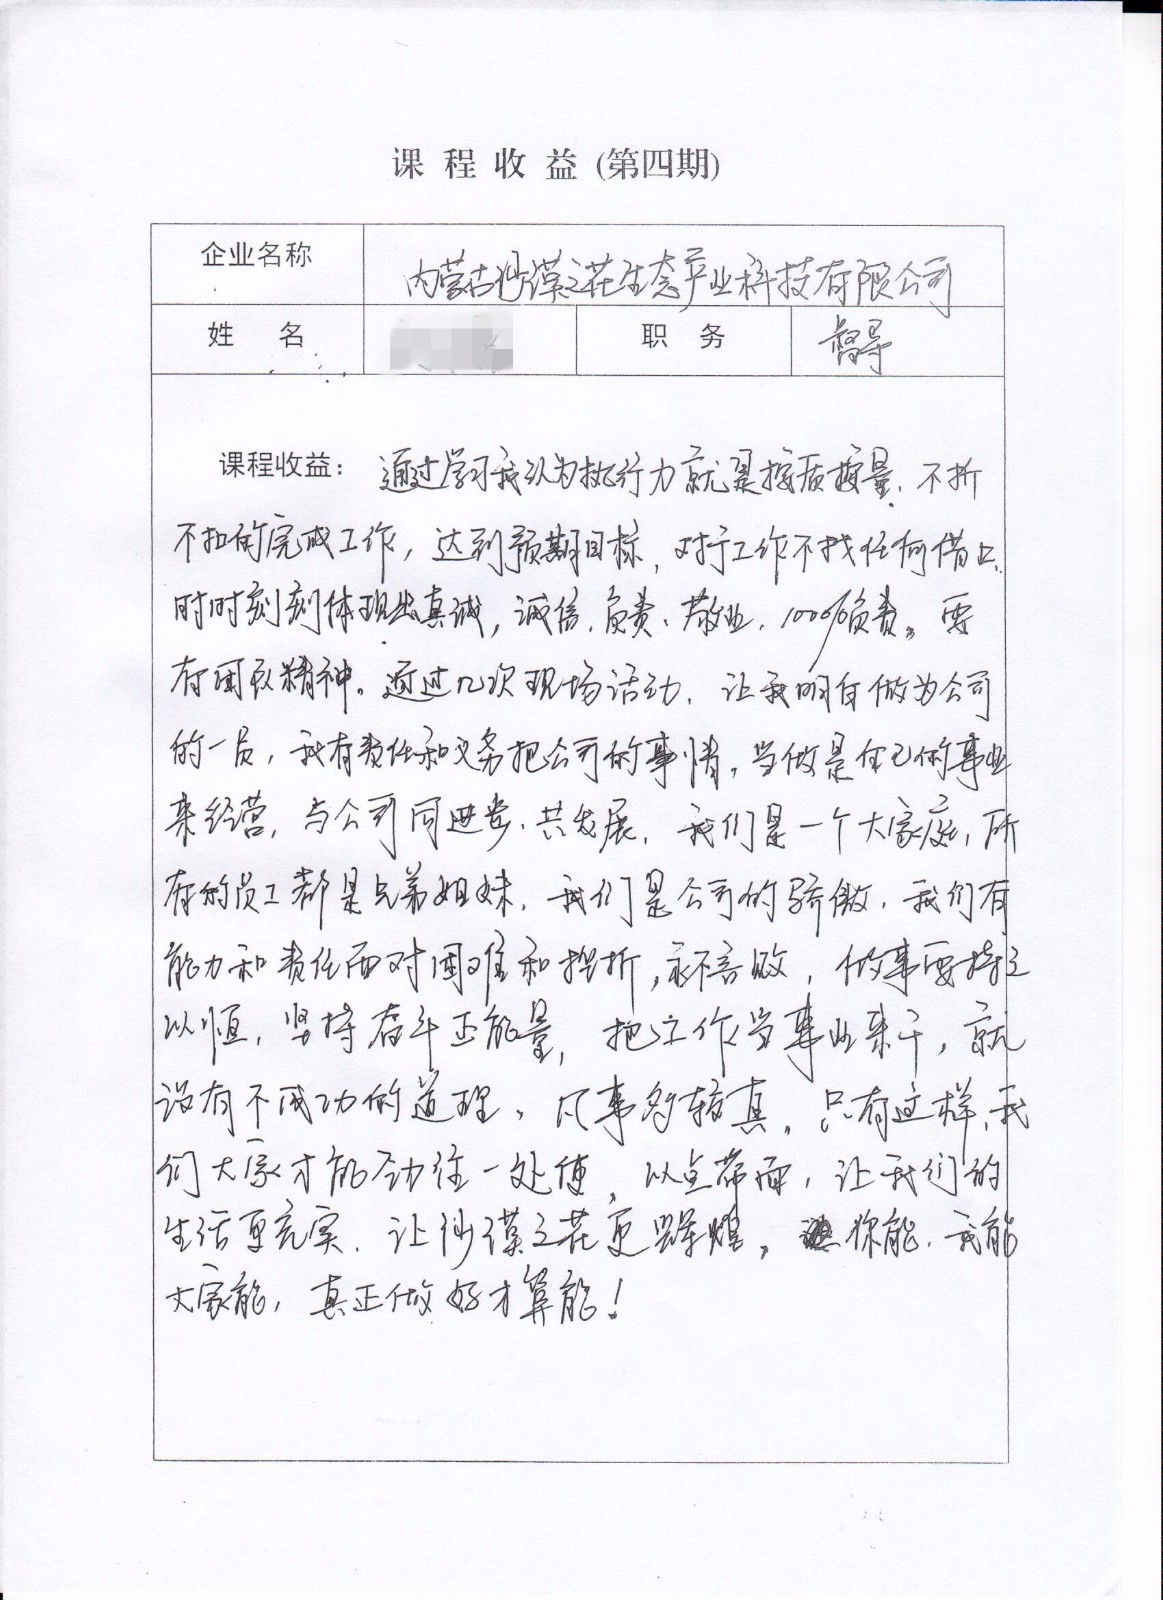 课程收益(第四期)
企业名称 内蒙古沙漠之花生态产业科技有限公司
姓名 职务 督导
课程收益：通过学习我认为执行力就是按质按量、不折
不扣的完成工作，达到预期目标，对于工作不找任何借口、
时时刻刻体现出真诚，诚信、负责、敬业、100%负责。要
有团队精神。通过几次现场活动、让我明白做为公司
的一员，我有责任和义务把公司的事情，当做是自己的事业
来经营，与公司同进步、共发展，我们是一个大家庭，所
有的员工都是兄弟姐妹，我们是公司的骄傲，我们有
能力和责任面对困难和挫折，永不言败，做事要持之
以恒，坚持奋斗正能量，把工作当事业来干，就
没有不成功的道理，凡事多较真。只有这样，我
们大家才能劲往一处使，以点带面，让我们的
生活更充实，让沙漠之花更辉煌， 你能、我能
大家能，真正做好才算能！